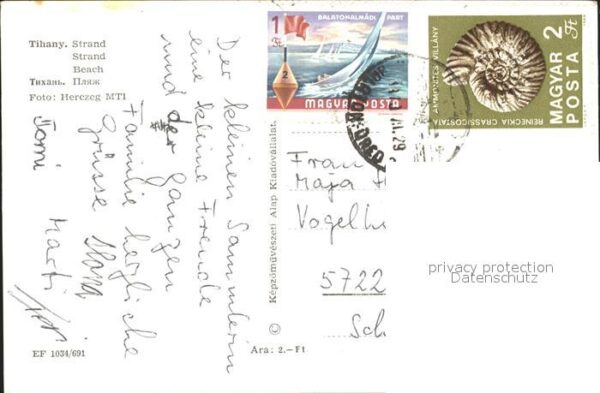 Tihany. Strand
Strand
Beach
Тихань. Пляж
Foto: Herczeg MTI
Der kleinen Sammlerin
eine kleine Freude
und der Ganzen
Familie herzliche
Grüsse
Tomi Marti
EF 1034/691
© Képzőművészeti Alap Kiadóvállalat.
Ára: 2.–Ft
1 Ft
BALATONALMÁDI PART
2
MAGYAR POSTA
AMMONITES VILLÁNY
REINECKIA CRASSICOSTATA
MAGYAR 2 Ft
POSTA
Frau
Maja
Vogel
5722
Sch
privacy protection
Datenschutz